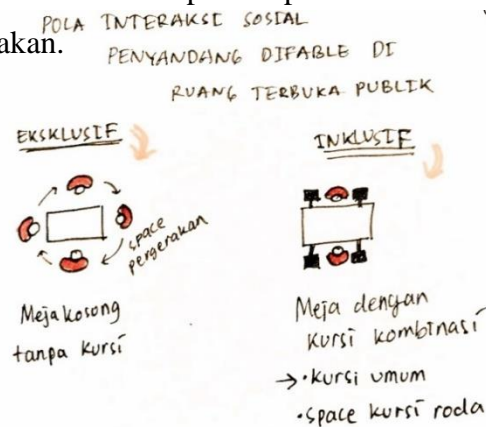 POLA INTERAKSI SOSIAL
akan.
PENYANDANG DIFABLE DI
RUANG TERBUKA PUBLIK
EKSKLUSIF
INKLUSIF
space
pergerakan
Meja kosong
tanpa kursi
Meja dengan
kursi kombinasi
→ • kursi umum
• space kursi roda